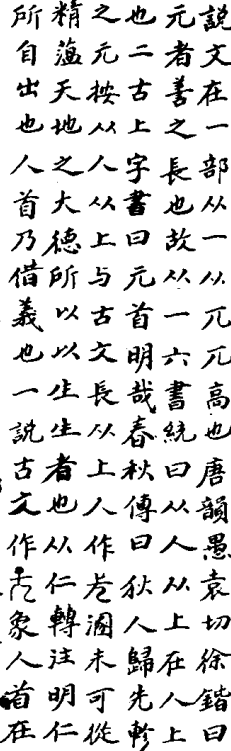 說文在一部从一从兀兀高也唐韻愚袁切徐鍇曰
元者善之長也故从一六書統曰从人从上在人上
也二古上字書曰元首明哉春秋傳曰狄人歸先軫
之元按从人从上与古文長从上人作溷未可從
精薀天地之大德所以以生生者也从仁轉注明仁
所自出也人首乃借義也一說古文作象人首在